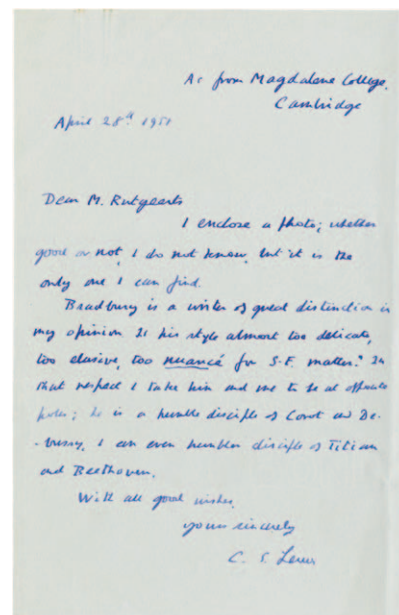 As from Magdalene College,
Cambridge
April 28th 1951
Dear M. Rutgeerts
I enclose a photo; whether
good or not, I do not know, but it is the
only one I can find.
Bradbury is a writer of great distinction in
my opinion. Is his style almost too delicate,
too elusive, too nuancé for S.F. matter? In
that respect I take him and me to be at opposite
poles; he is a humble disciple of Corot and De-
-bussy, I an even humbler disciple of Titian
and Beethoven.
With all good wishes.
yours sincerely
C. S. Lewis